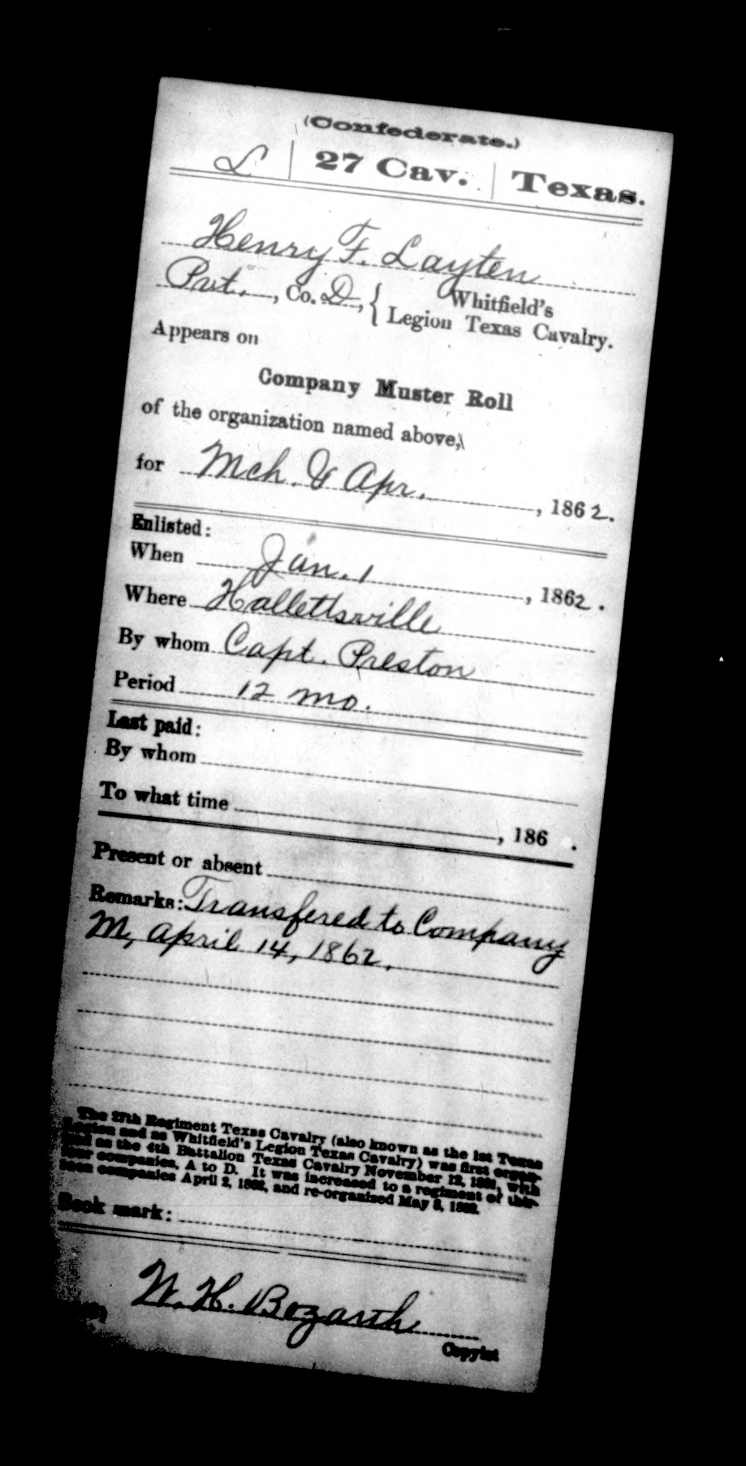 (Confederate.)
L | 27 Cav. | Texas.
Henry F. Layten
Pvt., Co. D, { Whitfield's
Legion Texas Cavalry.
Appears on
Company Muster Roll
of the organization named above,
for Mch. & Apr., 1862.
Enlisted:
When Jan. 1, 1862.
Where Hallettsville
By whom Capt. Preston
Period 12 mo.
Last paid:
By whom
To what time , 186 .
Present or absent
Remarks: Transfered to Company
M, April 14, 1862.
The 27th Regiment Texas Cavalry (also known as the 1st Texas
Legion and as Whitfield's Legion Texas Cavalry) was first organ-
ized as the 4th Battalion Texas Cavalry November 12, 1861, with
four companies, A to D. It was increased to a regiment of thir-
teen companies April 2, 1862, and re-organized May 8, 1862.
Book mark:
W. H. Bozarth
Copyist